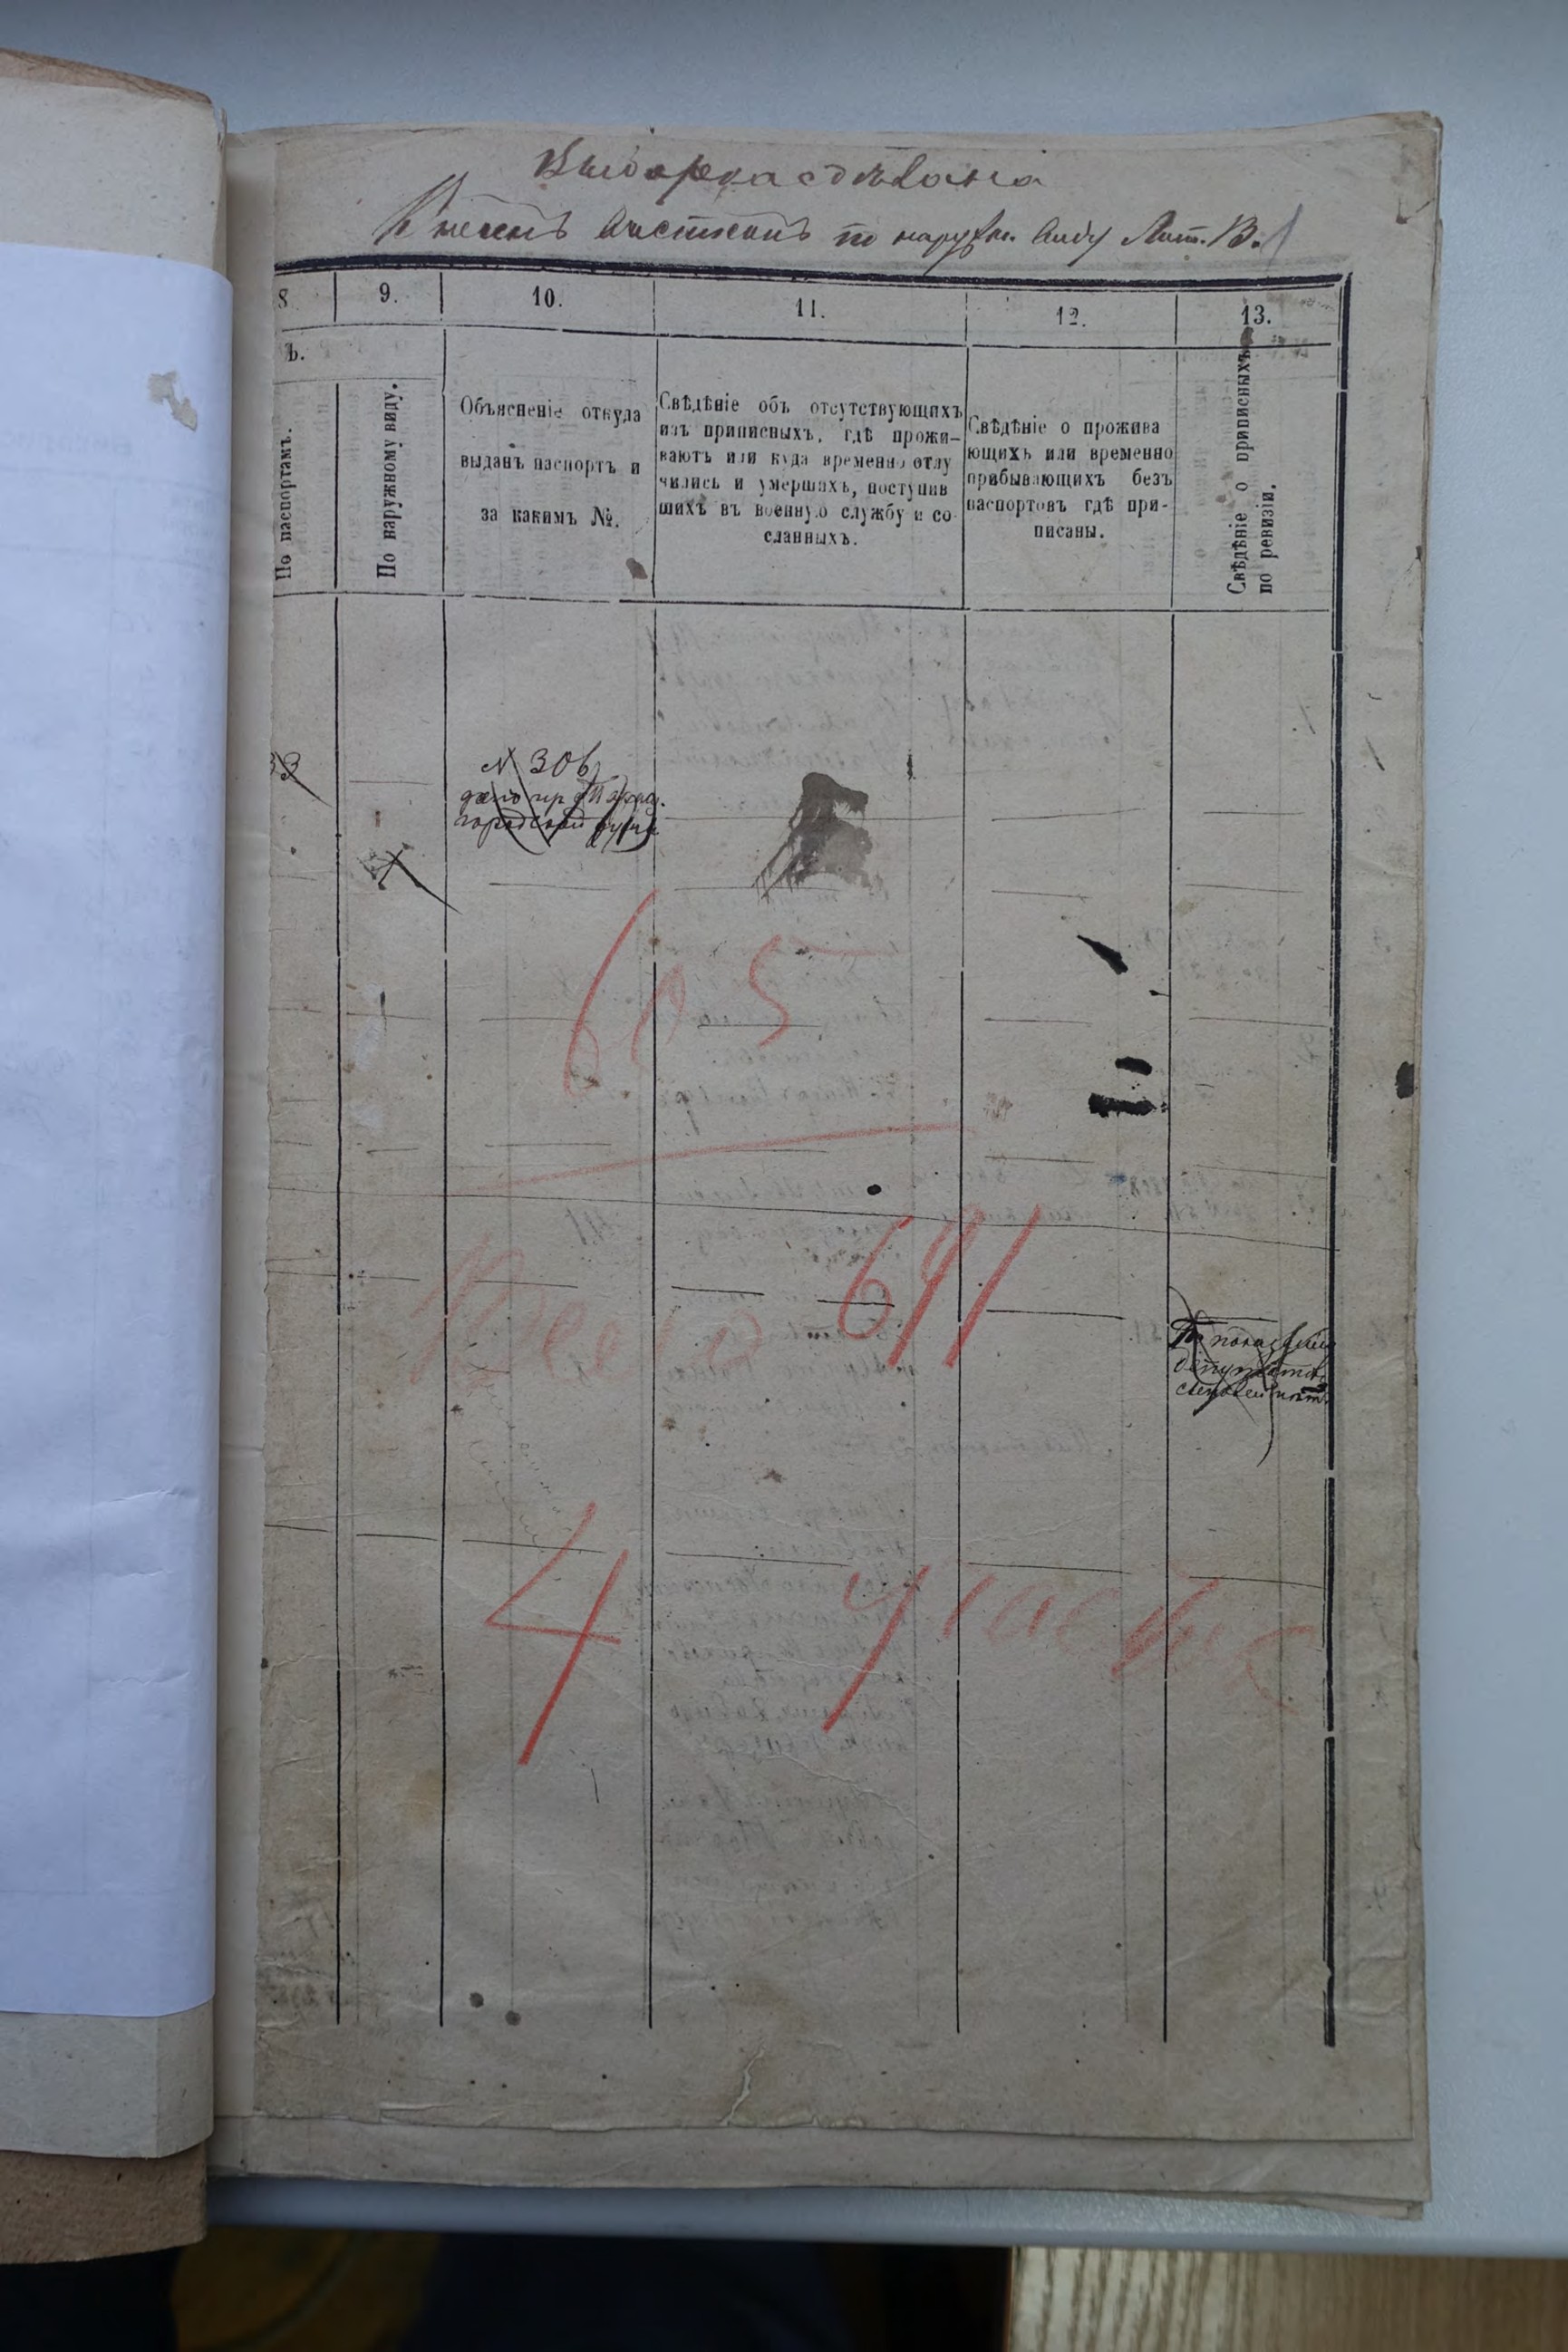 Выборка сдѣлана
Внесенъ въ списокъ по наружн. виду Лит. В.
8. 9. 10. 11. 12. 13.
ъ.
По паспортамъ.
По наружному виду.
Объясненіе откуда
выданъ паспортъ и
за какимъ №.
Свѣдѣніе объ отсутствующихъ
изъ приписныхъ, гдѣ прожи-
ваютъ или куда временно отлу
чились и умершихъ, поступив
шихъ въ военную службу и со
сланныхъ.
Свѣдѣніе о прожива
ющихъ или временно
прибывающихъ безъ
паспортовъ гдѣ при-
писаны.
Свѣдѣніе о приписныхъ
по ревизіи.
33
N 306
городской
605
Всего 691
По показанію
4 участок